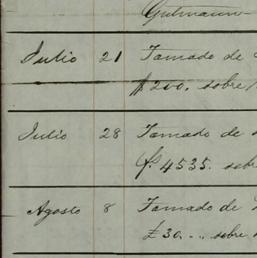 Gutmann
Julio 21 Tomado de
$200. sobre
Julio 28 Tomado de
$. 4535. sobre
Agosto 8 Tomado de
£ 30. .. sobre